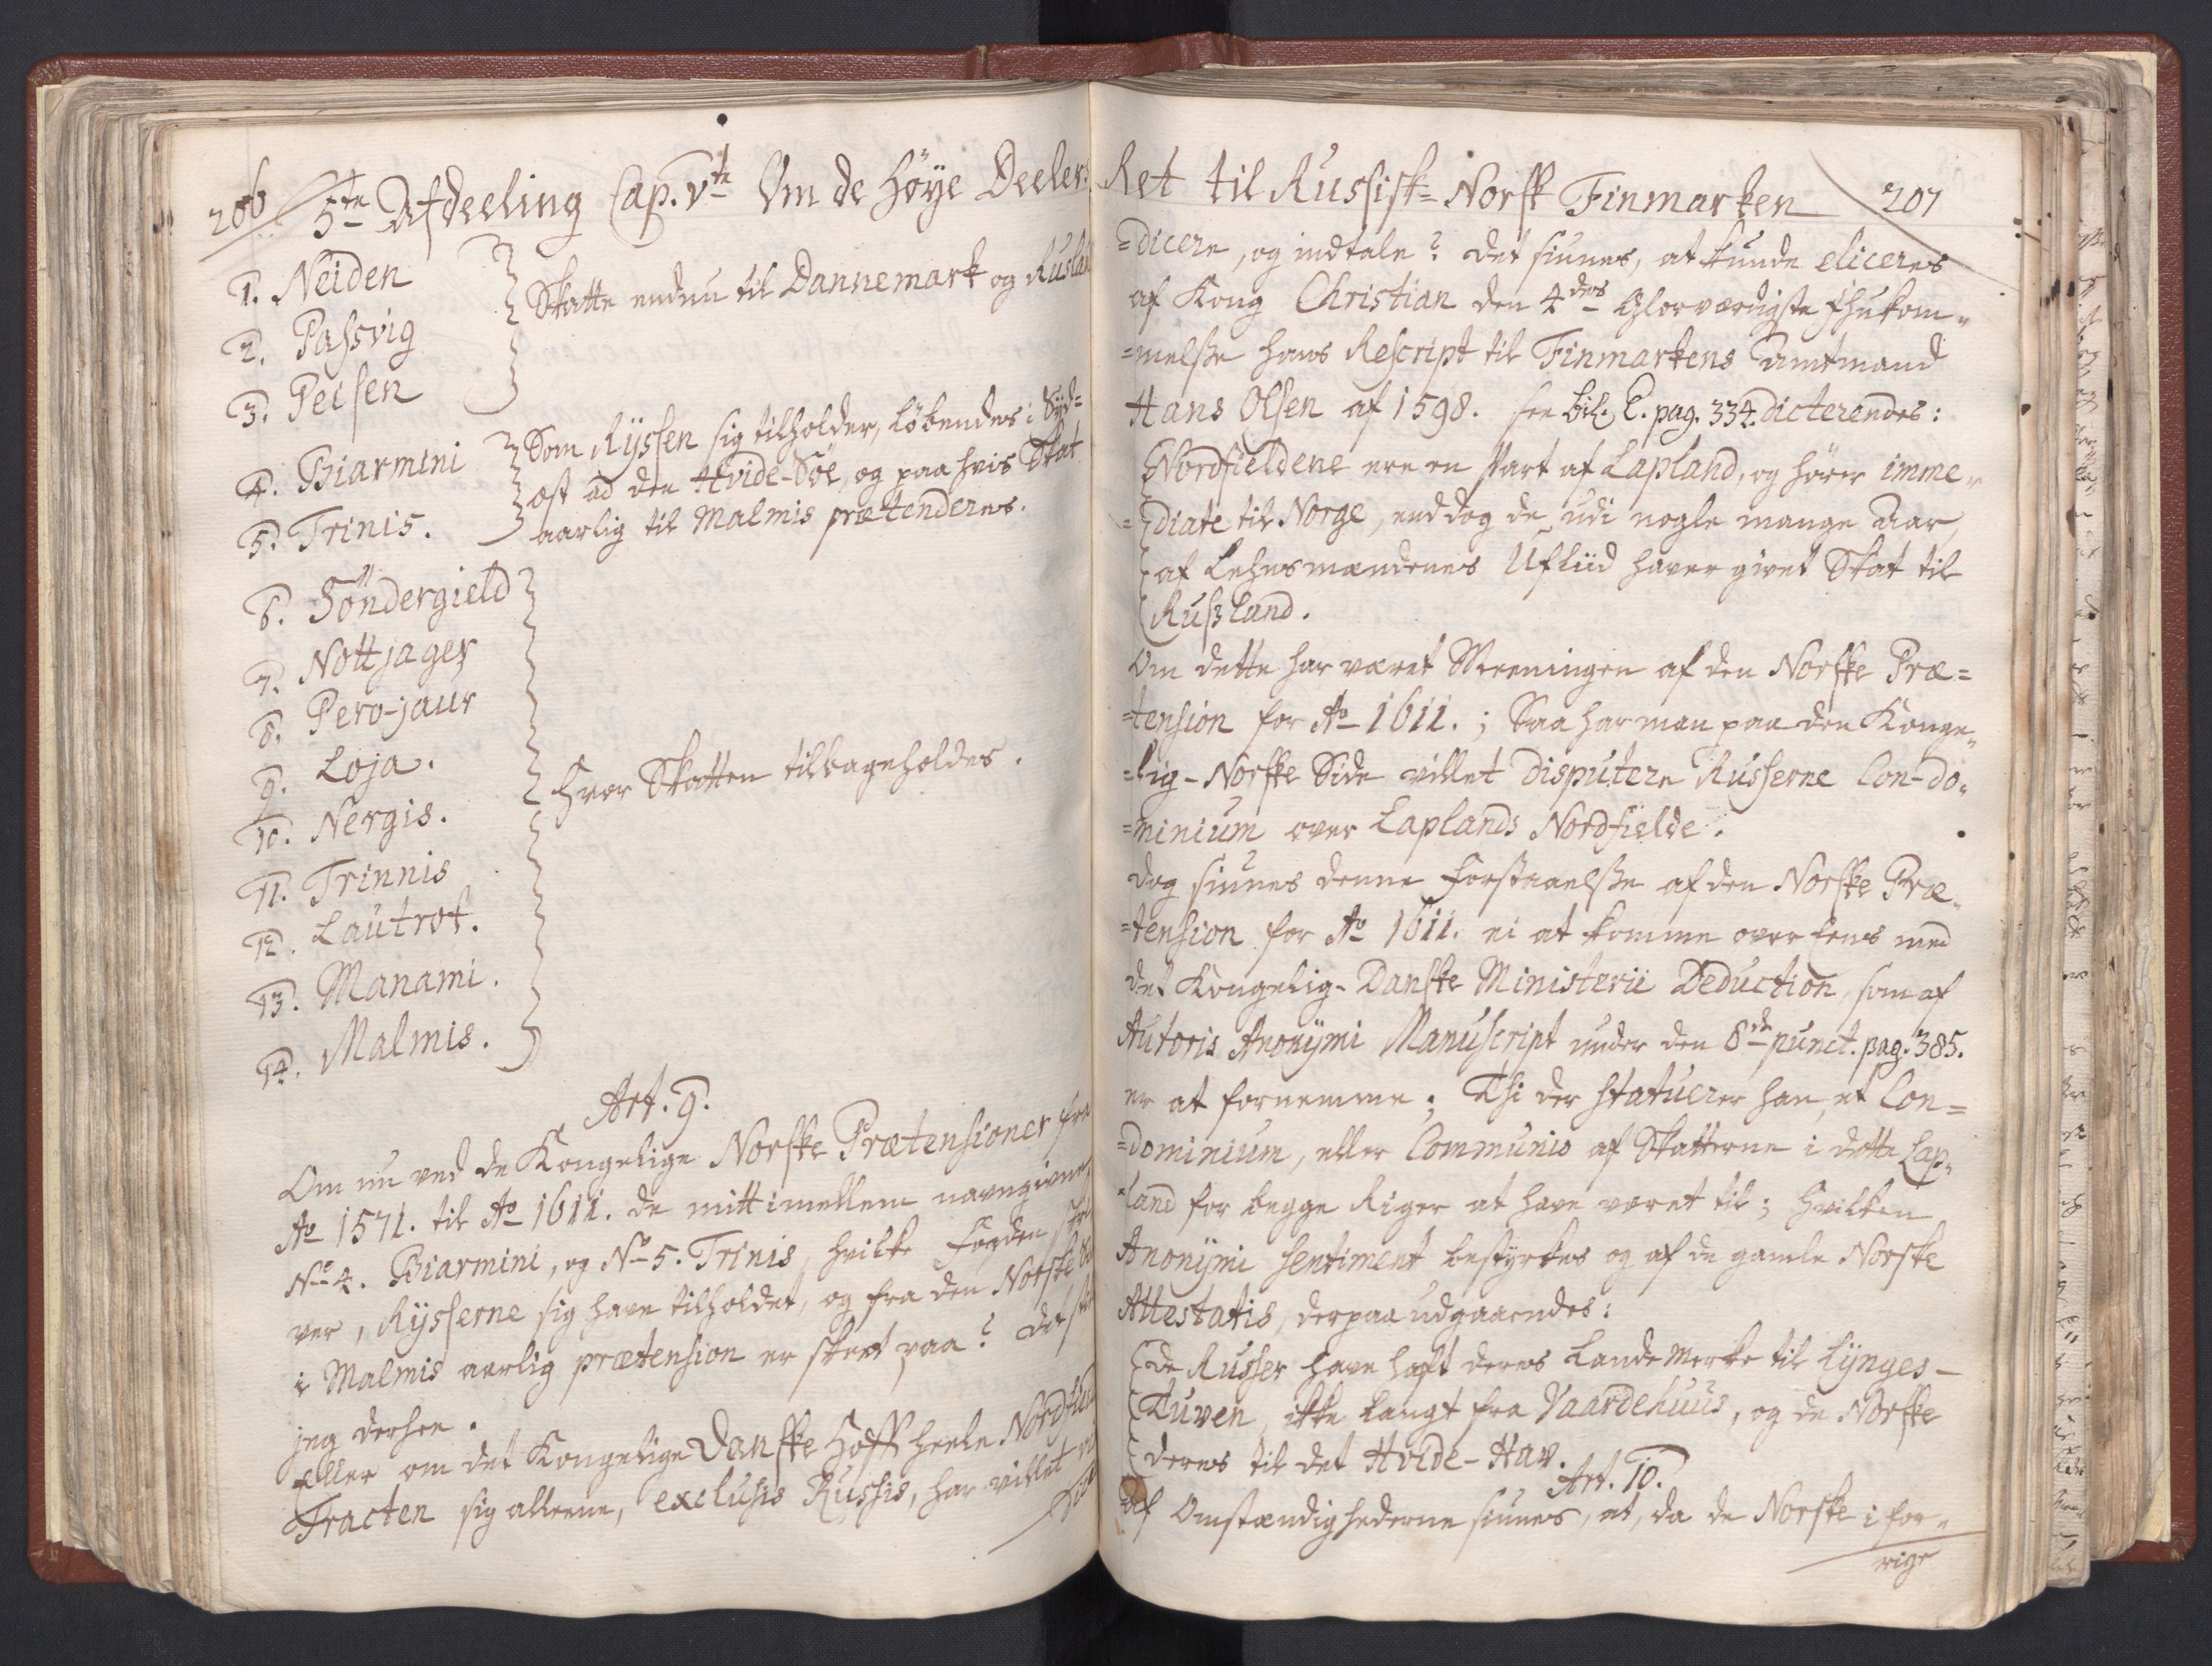 206
5te Afdeeling Cap. Vte Om de Høye Deelers
1. Neiden
2. Passvig
3. Peisen
Skatte endnu til Dannemark og Rusland
4. Biarmini
5. Trinis.
Som Ryssen sig tilholder, løbendes i Syd=
ost ad den Hvide-Søe, og paa hvis Skat
aarlig til Malmis prætenderes.
6. Søndergield
7. Nottjager
8. Pero-jaur
9. Loja.
10. Nergis.
11. Trinnis
12. Lautrot.
13. Manami.
14. Malmis.
Hvor Skatten tilbageholdes.
Art. 9.
Om nu ved de Kongelige Norske Prætensioner fra
Ao 1571. til Ao 1611. de mitt imellem navngivne
No 4. Biarmini, og No 5. Trinis, hvilke Fogden
ver, Rysserne sig have tilholdet, og fra den Norske
i Malmis aarlig prætension er skeet paa? det
jeg derhen.
Eller om det Kongelige Danske Hoff heele Nordfield
Tracten sig alleene, exclusis Russis, har villet
Ret til Russisk=Norsk Finmarken
207
=dicere, og indtale? det siunes, at kunde eliceres
af Kong Christian den 4des Glorværdigste Ihukom=
=melsse hans Rescript til Finmarkens Amtmand
Hans Olsen af 1598. see bil. C. pag. 334. dicterendes:
Nordfieldene ere en Part af Lapland, og hører imme=
=diate til Norge, end dog de udi nogle mange Aar,
af Lehnsmændenes Ufliid haver givet Skat til
Russland.
Om dette har været Meeningen af den Norske Præ=
=tension for Ao 1611.; Saa har man paa den Konge=
=lig-Norske Side villet disputere Russerne Con-do=
=minium over Laplands Nordfielde.
dog siunes denne Forstaaelsse af den Norske Præ=
=tension for Ao 1611. ei at komme over Eens med
det Kongelig-Danske Ministerii Deduction, som af
Autoris Anonymi Manuscript under den 8de punct. pag. 385.
er at fornemme; Thi der statuerer han, et Con=
=dominium, eller Communio af Skatterne i dette Lap=
=land for begge Riger at have været til; Hvilken
Anonymi sentiment bestyrkes og af de gamle Norske
Attestatis, derpaa udgaaendes:
de Russer have haft deres Landemerke til Lynges-
Tuven, ikke langt fra Vaardehuus, og de Norske
deres til det Hvide-Hav.
Art. 10.
Af Omstændighederne siunes, at, da de Norske i for=
rige